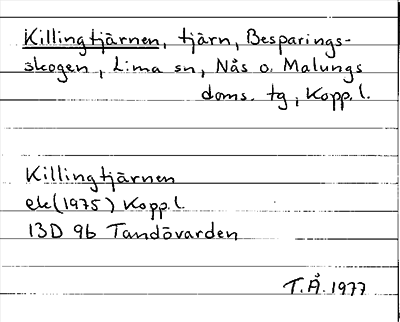 Killingtjärnen, tjärn, Besparings-
skogen, Lima sn, Nås o. Malungs
doms. tg, Kopp.l.
Killingtjärnen
ek(1975) Kopp.l.
13D 9b Tandövarden
T.Å.1977